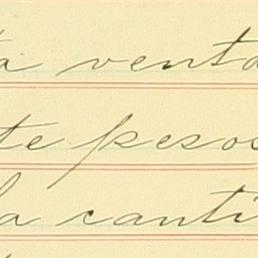 ta venta
te pesos
la canti